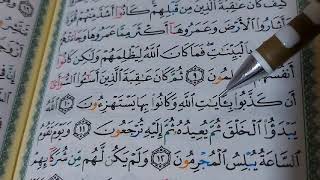 كَيْفَ كَانَ عَٰقِبَةُ ٱلَّذِينَ مِن قَبْلِهِمْ كَانُوٓا۟ أَشَدَّ مِنْهُمْ
وَأَثَارُوا۟ ٱلْأَرْضَ وَعَمَرُوهَآ أَكْثَرَ مِمَّا عَمَرُوهَا
بِٱلْبَيِّنَٰتِ فَمَا كَانَ ٱللَّهُ لِيَظْلِمَهُمْ وَلَٰكِن كَانُوٓا۟
أَنفُسَهُمْ يَظْلِمُونَ ٩ ثُمَّ كَانَ عَٰقِبَةَ ٱلَّذِينَ أَسَٰٓـُٔوا۟ ٱلسُّوٓأَىٰٓ
أَن كَذَّبُوا۟ بِـَٔايَٰتِ ٱللَّهِ وَكَانُوا۟ بِهَا يَسْتَهْزِءُونَ ١٠
يَبْدَؤُا۟ ٱلْخَلْقَ ثُمَّ يُعِيدُهُۥ ثُمَّ إِلَيْهِ تُرْجَعُونَ ١١ وَيَوْمَ تَقُومُ
ٱلسَّاعَةُ يُبْلِسُ ٱلْمُجْرِمُونَ ١٢ وَلَمْ يَكُن لَّهُم مِّن شُرَكَآئِهِمْ